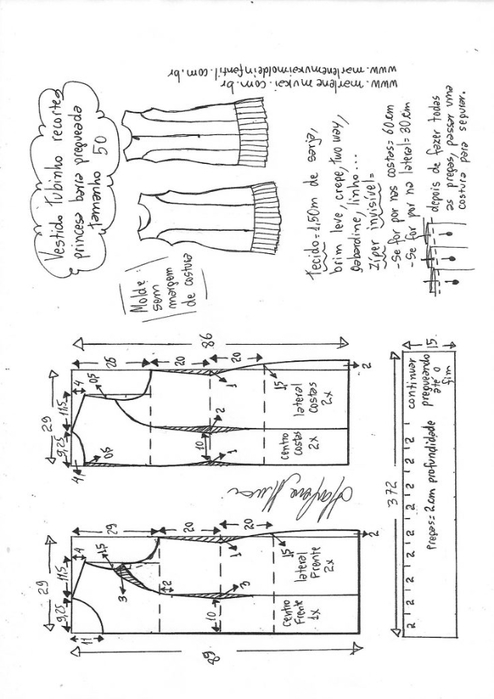 www.marlenemukai.com.br
www.marlenemukaimoldeinfantil.com.br
Vestido tubinho recorte
princesa barra pregueada
tamanho 50
Molde
sem
margem
de costura
Tecido=1,50m de sarja,
brim leve, crepe, two way,
gabardine, linho...
Zíper invisível=
-Se for por nas costas=60cm
-Se for por na lateral=30cm
depois de fazer todas
as pregas, passar uma
costura para segurar.
86
29
26
20
20
4
11,5
9,25
4
1
2
10
1
1,5
2
centro
costas
2x
lateral
costas
2x
29
29
20
20
4
11,5
9,25
11
1,5
3
2
10
1
3
1,5
2
89
centro
frente
1x
lateral
frente
2x
372
15
2 2 2 2 2 2 2 2 2 2 2
Pregas=2cm profundidade
continuar
pregueando
até o
fim